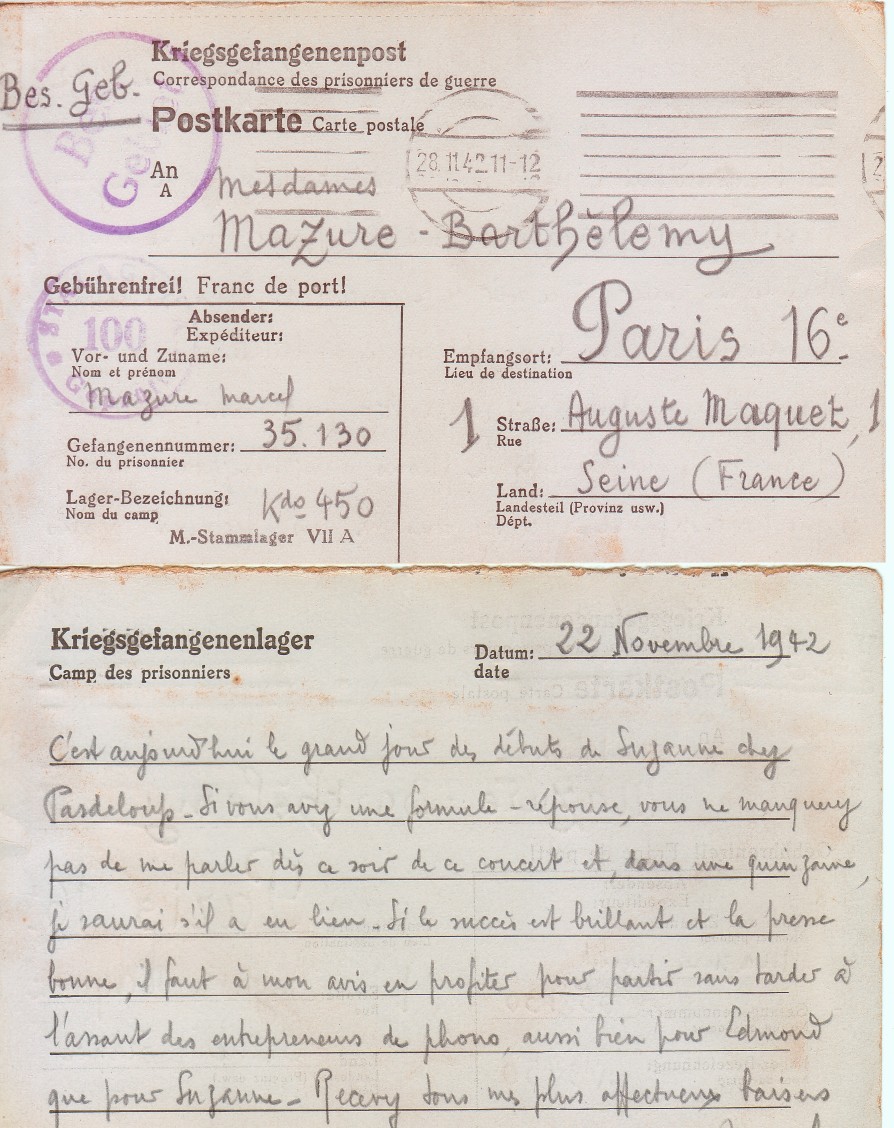 Kriegsgefangenenpost
Correspondance des prisonniers de guerre
Bes. Geb.
Postkarte Carte postale
28.11.42.11-12
An
A
Mesdames
Mazure - Barthèlemy
Gebührenfrei! Franc de port!
Absender:
Expéditeur:
Vor- und Zuname:
Nom et prénom
Mazure Marcel
Gefangenennummer: 35.130
No. du prisonnier
Lager-Bezeichnung: Kdo 450
Nom du camp
M.-Stammlager VII A
100
Empfangsort: Paris 16e
Lieu de destination
1 Straße: Auguste Maquet, 1
Rue
Land: Seine (France)
Landesteil (Provinz usw.)
Dépt.
Kriegsgefangenenlager
Camp des prisonniers
Datum: 22 Novembre 1942
date
C'est aujourd'hui le grand jour des débuts de Suzanne chez
Pasdeloup - Si vous avez une formule - réponse, vous ne manquerez
pas de me parler dès ce soir de ce concert et, dans une quinzaine,
je saurai s'il a eu lieu - Si le succès est brillant et la presse
bonne, il faut à mon avis en profiter pour partir sans tarder à
l'assaut des entrepreneurs de phono, aussi bien pour Edmond
que pour Suzanne - Recevez tous mes plus affectueux baisers